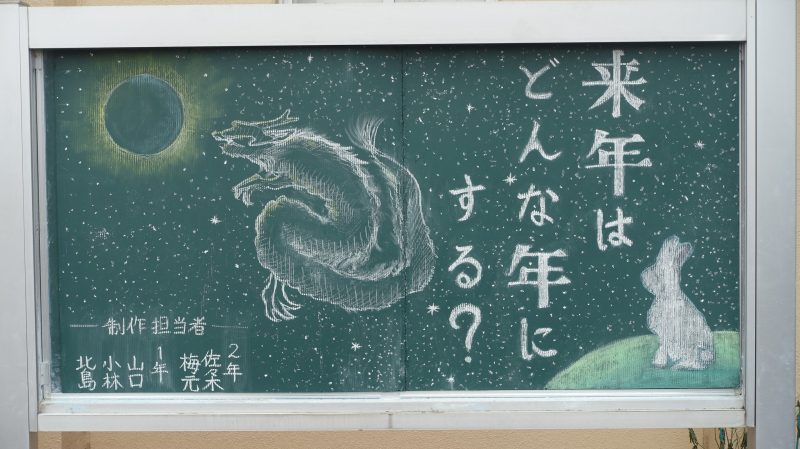 来年は
どんな年に
する?
制作担当者
2年
佐々木
梅元
1年
山口
小林
北島